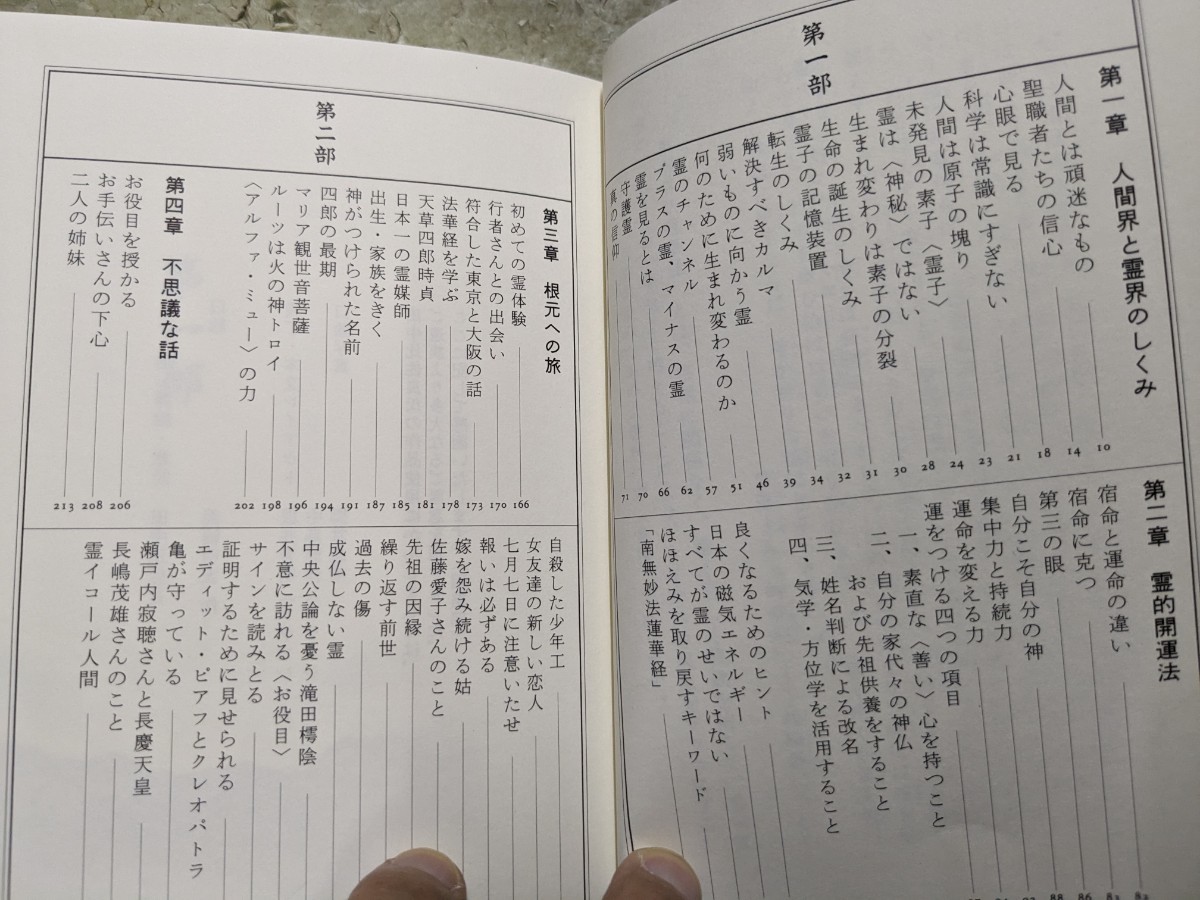 第一部
第一章　人間界と霊界のしくみ
人間とは頑迷なもの　10
聖職者たちの信心　14
心眼で見る　18
科学は常識にすぎない　21
人間は原子の塊り　23
未発見の素子〈霊子〉　24
霊は〈神秘〉ではない　28
生まれ変わりは素子の分裂　30
生命の誕生のしくみ　31
霊子の記憶装置　32
転生のしくみ　34
解決すべきカルマ　39
弱いものに向かう霊　46
何のために生まれ変わるのか　51
霊のチャンネル　57
プラスの霊、マイナスの霊　62
霊を見るとは　66
守護霊　70
真の信仰　71
第二章　霊的開運法
宿命と運命の違い　82
宿命に克つ　83
第三の眼　86
自分こそ自分の神　88
集中力と持続力
運命を変える力
運をつける四つの項目
一、素直な〈善い〉心を持つこと
二、自分の家代々の神仏
および先祖供養をすること
三、姓名判断による改名
四、気学・方位学を活用すること
良くなるためのヒント
日本の磁気エネルギー
すべてが霊のせいではない
ほほえみを取り戻すキーワード
「南無妙法蓮華経」
第二部
第三章　根元への旅
初めての霊体験　166
行者さんとの出会い　170
符合した東京と大阪の話　173
法華経を学ぶ　178
天草四郎時貞　181
日本一の霊媒師　185
出生・家族をきく　187
神がつけられた名前　191
四郎の最期　194
マリア観世音菩薩　196
ルーツは火の神トロイ　198
〈アルファ・ミュー〉の力　202
第四章　不思議な話
お役目を授かる　206
お手伝いさんの下心　208
二人の姉妹　213
自殺した少年工
女友達の新しい恋人
七月七日に注意いたせ
報いは必ずある
嫁を怨み続ける姑
佐藤愛子さんのこと
先祖の因縁
繰り返す前世
過去の傷
成仏しない霊
中央公論を憂う滝田樗陰
不意に訪れる〈お役目〉
サインを読みとる
証明するために見せられる
エディット・ピアフとクレオパトラ
亀が守っている
瀬戸内寂聴さんと長慶天皇
長嶋茂雄さんのこと
霊イコール人間